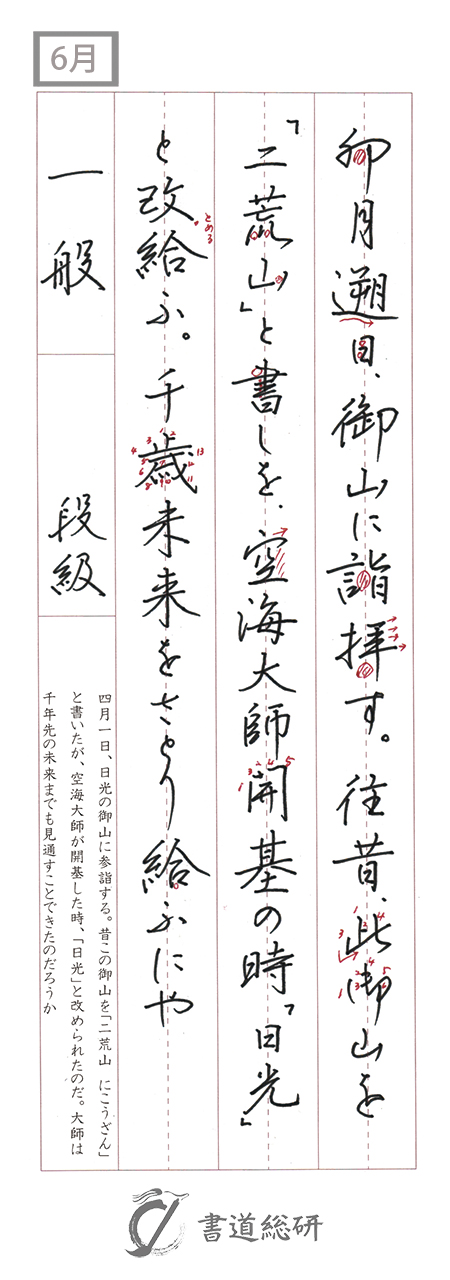 6月
卯月遡日、御山に詣拝す。往昔、此御山を
「二荒山」と書しを、空海大師開基の時「日光」
と改給ふ。千歳未来をさとり給ふにや
とめる
一般
段級
四月一日、日光の御山に参詣する。昔この御山を「二荒山 にこうざん」
と書いたが、空海大師が開基した時、「日光」と改められたのだ。大師は
千年先の未来までも見通すことできたのだろうか
書道総研